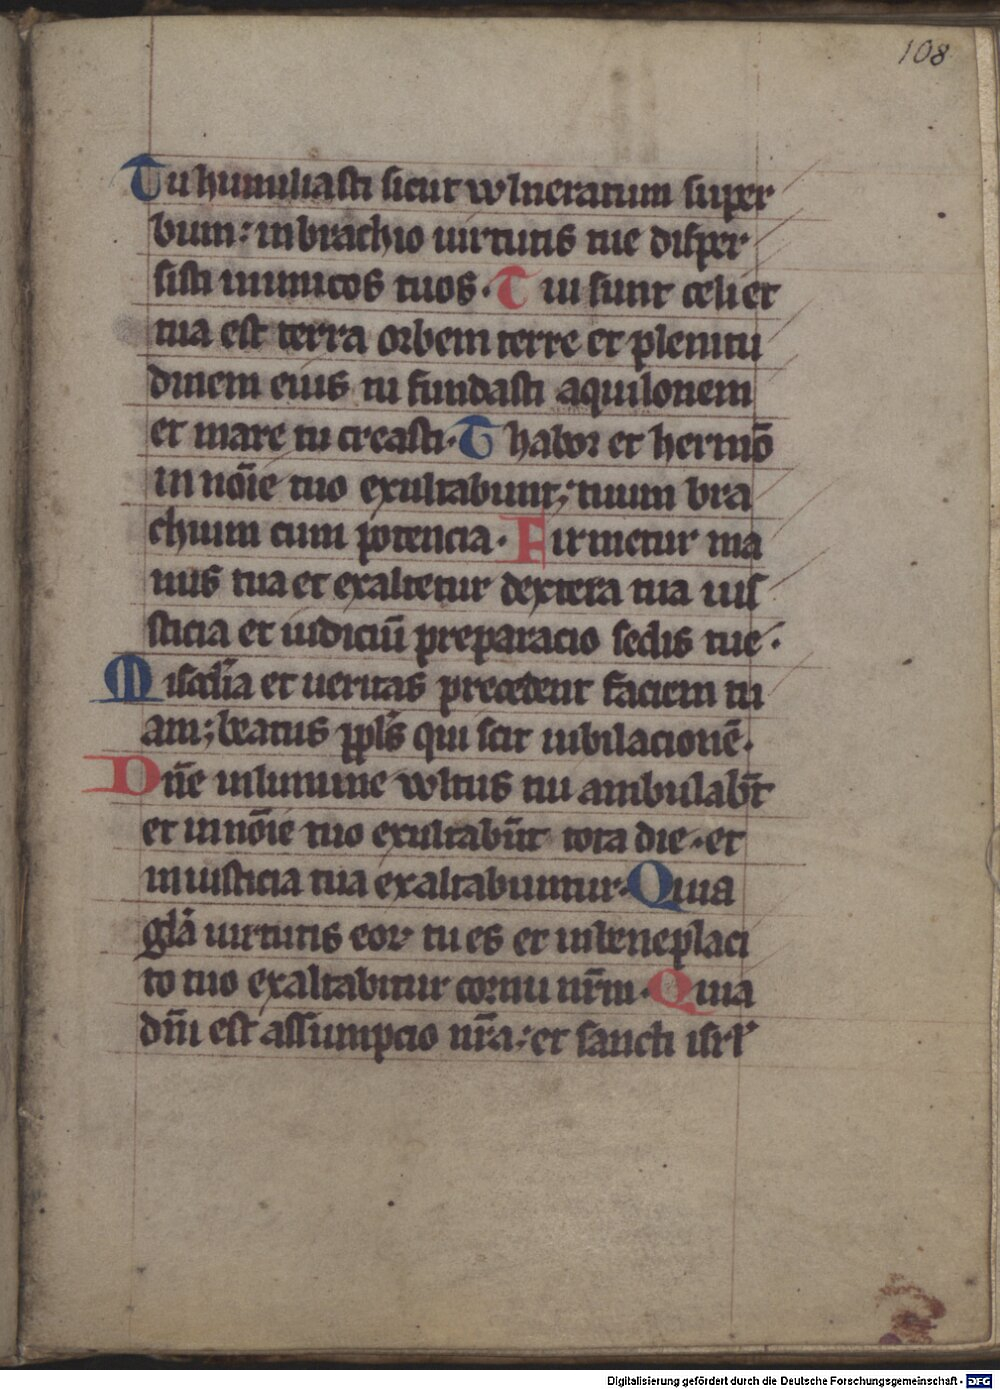 108
Tu humiliasti sicut wlneratum super
bum: in brachio uirtutis tue disper
sisti inimicos tuos. Tui sunt celi et
tua est terra orbem terre et plenitu
dinem eius tu fundasti aquilonem
et mare tu creasti. Thabor et hermō
in nōīe tuo exultabunt; tuum bra
chium cum potencia. Firmetur ma
nus tua et exaltetur dextera tua ius
sticia et iudiciū preparacio sedis tue.
Misc̄dīa et ueritas precedent faciem tu
am; beatus ppl̄s qui scit iubilacionē.
Dn̄e in lumine wltus tui ambulab̄t
et in nōīe tuo exultabūt tota die. et
in iusticia tua exaltabuntur. Quia
gl̄a uirtutis eoꝝ tu es et in beneplaci
to tuo exaltabitur cornu nr̄m. Quia
dn̄i est assumpcio nr̄a: et sancti isrl̄
Digitalisierung gefördert durch die Deutsche Forschungsgemeinschaft - DFG